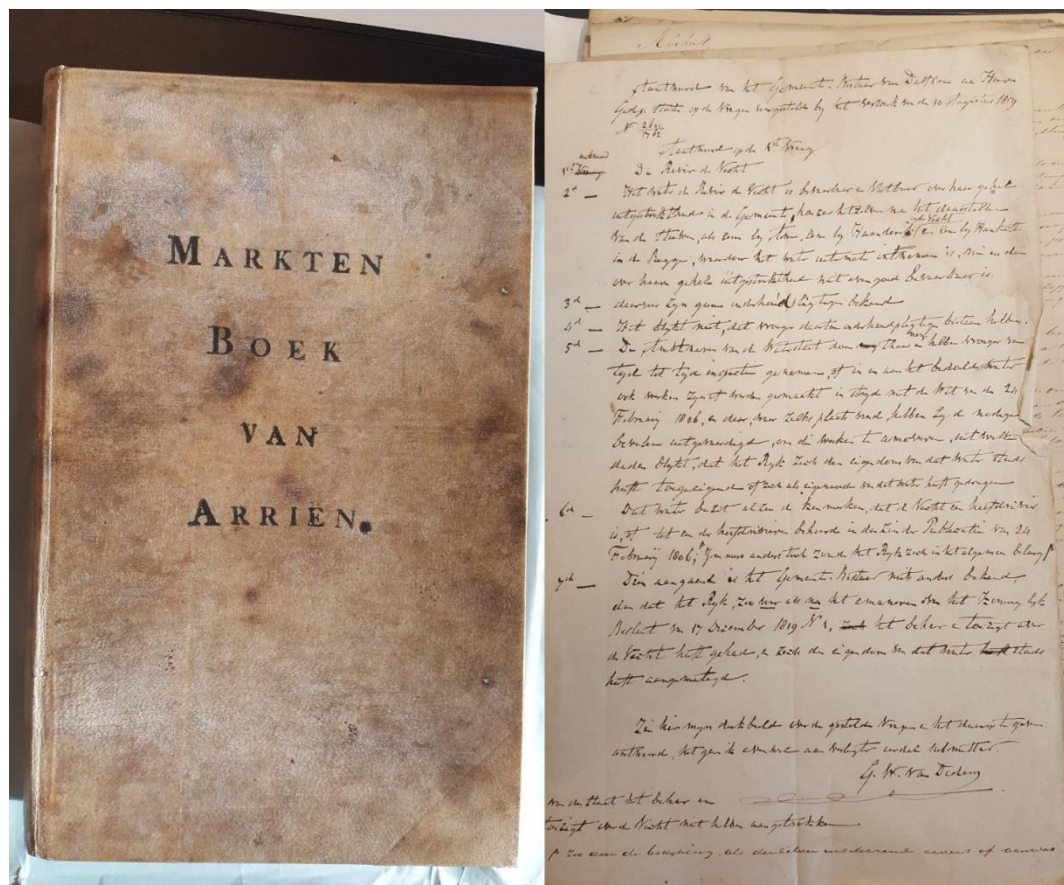 MARKTEN
BOEK
VAN
ARRIËN.
Antwoord van het Gemeente Bestuur van Dalfsen aan Heeren
Gedep. Staten op de Vragen voorgesteld by het besluit van de 10 Augustus 1859
N°
Antwoord op de 1e Vraag
antwoord
De Rivier de Vecht
2e — Het water de Rivier de Vecht is bevaarbaar en vlotbaar over haar gehele
uitgestrektheid in de Gemeente,
van de Stuwen, als een by Ane, een by Haandrik en een by Hankate
in de Regge, waardoor het water is,
over haren gehele uitgestrektheid niet even goed bevaarbaar is
3e — daarvan zyn geene onderhoudspligtigen bekend
4e — Het blykt niet, dat vroeger daartoe onderhoudspligtige bestaan hebben.
5e — De Ambtenaren van de Waterstaat hebben vroeger van
tyd tot tyd inspectien genomen, of in en aan het bedoelde water
ook werken zyn of worden gemaakt in stryd met de Wet van de 24
February 1806, en daar, waar zulks plaats vond, hebben zy de noodige
bevelen uitgevaardigd, om die werken te amoveren, uit welke
daden blykt, dat het Ryk zich den eigendom van dat water steeds
heeft toegeeigend of zich als eigenaar van dat water heeft gedragen
6e — Dat water bezit alzoo de kenmerken, dat de Vecht een hoofdrivier
is, of tot een der hoofdrivieren behoorde in den zin der Publicatie van 24
February 1806; immers anders toch zoude het Ryk zich in het algemeen belang
7e — Dien aangaande is het Gemeente Bestuur niets anders bekend,
dan dat het Ryk, zoo voor als na het emaneren van het Koninglyk
Besluit van 17 December 1819 N° 1, het beheer en toezigt over
de Vecht heeft gehad, en zich den eigendom van dat water steeds
heeft aangematigd.
Zie hier myn denkbeeld over de gestelde Vragen en het daarop te geven
antwoord, hetgeen ik evenwel aan
G. W. Van Dedem
van den Staat het beheer en
toezigt over de Vecht niet hebben aangetrokken